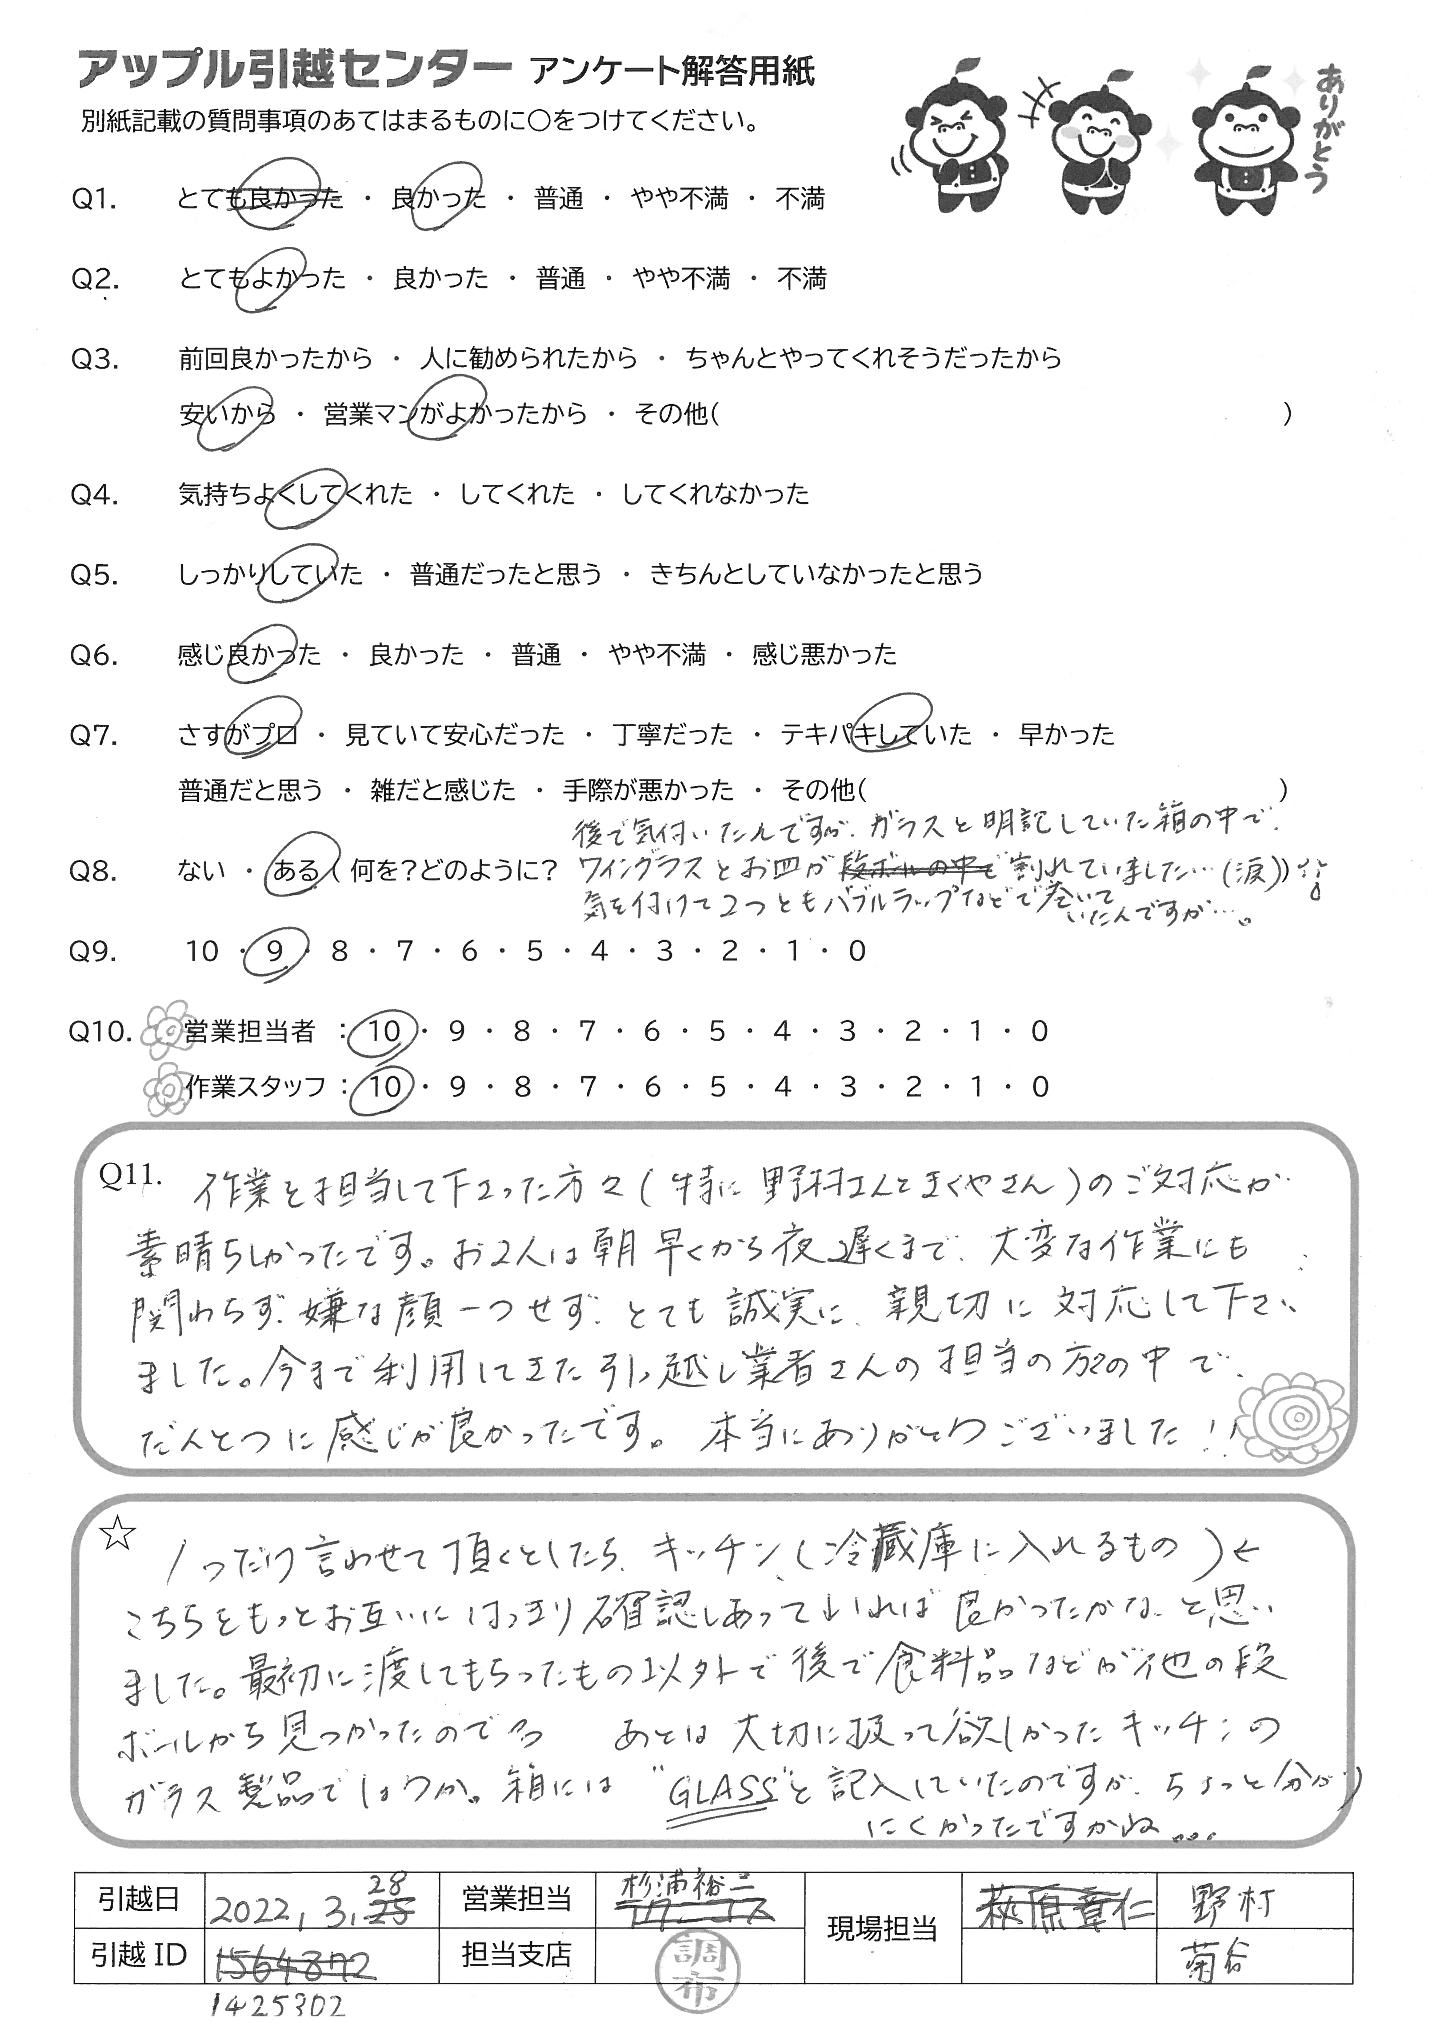 アップル引越センター アンケート解答用紙
別紙記載の質問事項のあてはまるものに○をつけてください。
ありがとう
Q1. とても良かった ・ 良かった ・ 普通 ・ やや不満 ・ 不満
Q2. とてもよかった ・ 良かった ・ 普通 ・ やや不満 ・ 不満
Q3. 前回良かったから ・ 人に勧められたから ・ ちゃんとやってくれそうだったから
安いから ・ 営業マンがよかったから ・ その他( )
Q4. 気持ちよくしてくれた ・ してくれた ・ してくれなかった
Q5. しっかりしていた ・ 普通だったと思う ・ きちんとしていなかったと思う
Q6. 感じ良かった ・ 良かった ・ 普通 ・ やや不満 ・ 感じ悪かった
Q7. さすがプロ ・ 見ていて安心だった ・ 丁寧だった ・ テキパキしていた ・ 早かった
普通だと思う ・ 雑だと感じた ・ 手際が悪かった ・ その他( )
後で気付いたんですが、ガラスと明記していた箱の中で、
Q8. ない ・ ある ( 何を？どのように？ ワイングラスとお皿が段ボールの中で割れていました…(涙))
気を付けて2つともバブルラップなどで巻いて
いたんですが…。
Q9. 10 ・ 9 ・ 8 ・ 7 ・ 6 ・ 5 ・ 4 ・ 3 ・ 2 ・ 1 ・ 0
Q10. 営業担当者 ： 10 ・ 9 ・ 8 ・ 7 ・ 6 ・ 5 ・ 4 ・ 3 ・ 2 ・ 1 ・ 0
作業スタッフ ： 10 ・ 9 ・ 8 ・ 7 ・ 6 ・ 5 ・ 4 ・ 3 ・ 2 ・ 1 ・ 0
Q11. 作業を担当して下さった方々(特に野村さんときくやさん)のご対応が
素晴らしかったです。お2人は朝早くから夜遅くまで、大変な作業にも
関わらず、嫌な顔一つせず、とても誠実に、親切に対応して下さい
ました。今まで利用してきた引っ越し業者さんの担当の方の中で、
だんとつに感じが良かったです。本当にありがとうございました!!
☆ 1つだけ言わせて頂くとしたら、キッチン(冷蔵庫に入れるもの)←
こちらをもっとお互いにはっきり確認しあっていれば良かったかな、と思い
ました。最初に渡してもらったもの以外で後で食料品などが他の段
ボールから見つかったので あとは大切に扱って欲しかったキッチンの
ガラス製品でしょうか。箱には"GLASS"と記入していたのですが、ちょっと分かり
にくかったですかね…
引越日 2022,3,25 28 営業担当 杉浦裕二 現場担当 萩原章仁 野村
引越ID 1564872 担当支店 調布 菊谷
1425302